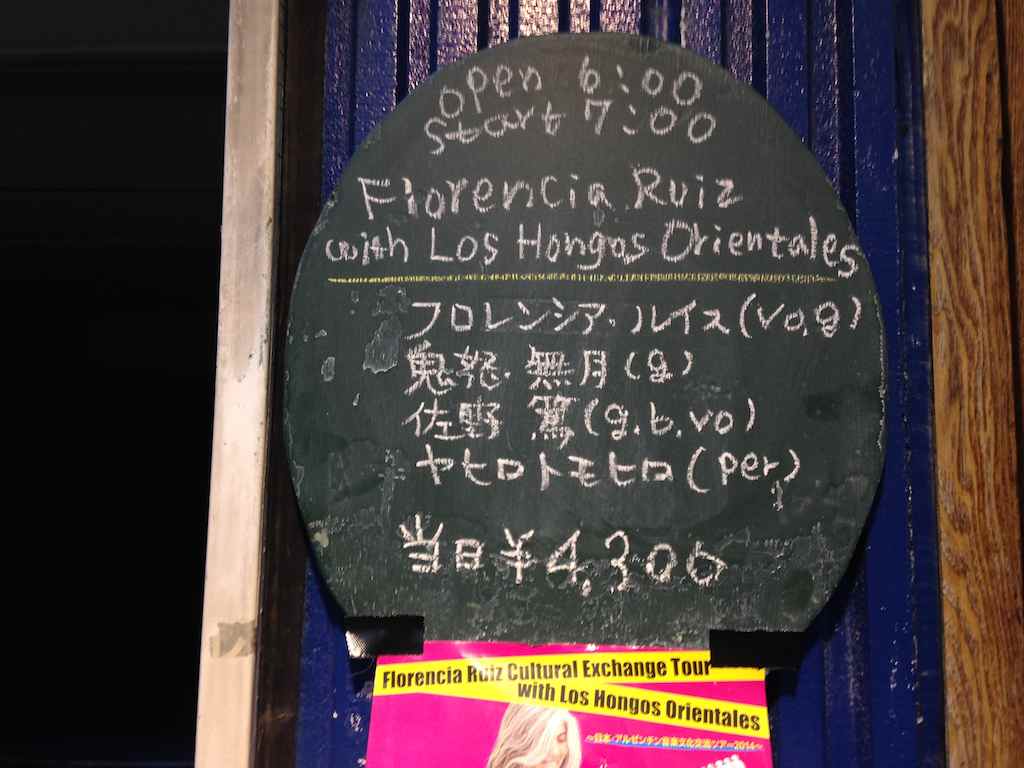 open 6:00
start 7:00
Florencia Ruiz
with Los Hongos Orientales
フロレンシア・ルイス(vo,g)
鬼怒 無月(g)
佐野 篤(g.b.vo)
ヤヒロトモヒロ(per)
当日¥4,300
Florencia Ruiz Cultural Exchange Tour
with Los Hongos Orientales
〜日本・アルゼンチン音楽文化交流ツアー2014〜